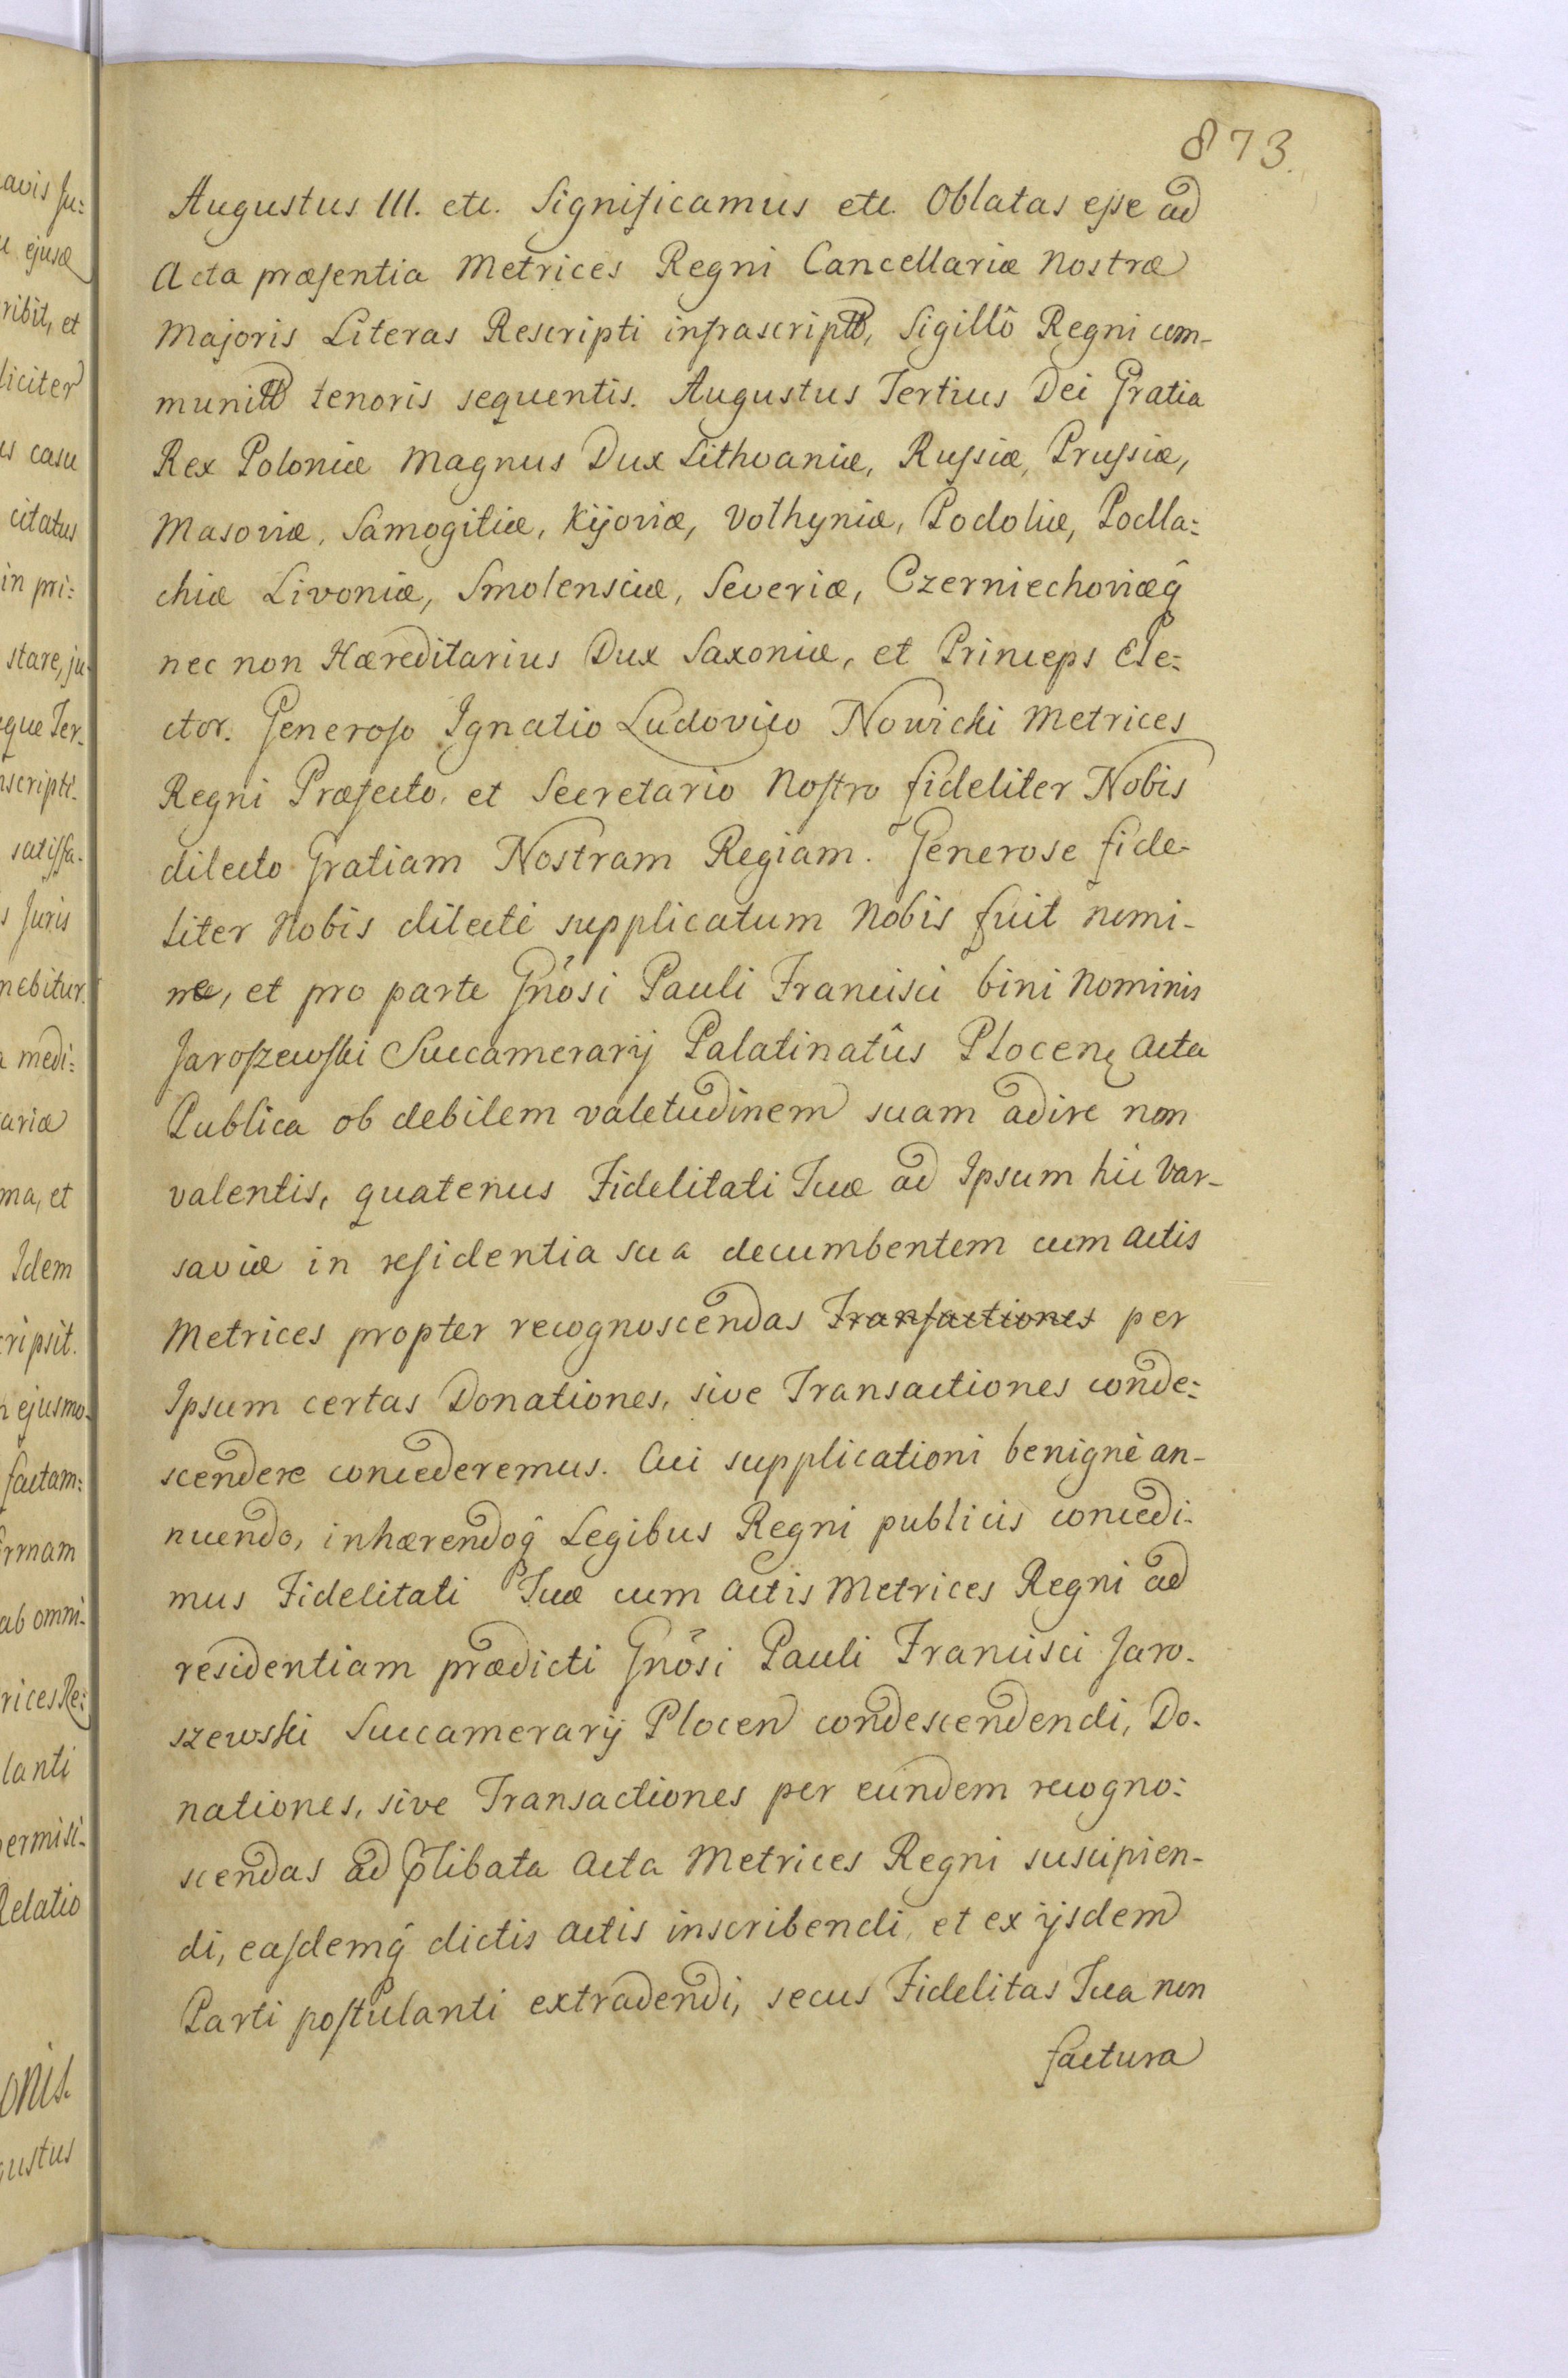 873.
Augustus III. etc. Significamus etc. Oblatas esse ad
Acta præsentia Metrices Regni Cancellariæ Nostræ
Majoris Literas Rescripti infrascript, Sigillô Regni com-
munit tenoris sequentis. Augustus Tertius Dei Gratia
Rex Poloniæ Magnus Dux Lithvaniæ, Russiæ, Prussiæ,
Masoviæ, Samogitiæ, Kijoviæ, Volhyniæ, Podoliæ, Podla=
chiæ Livoniæ, Smolensciæ, Severiæ, Czerniechoviæq̂
nec non Hæreditarius Dux Saxoniæ, et Princeps Ele=
ctor. Generoso Ignatio Ludovico Nowicki Metrices
Regni Præfecto, et Secretario Nostro fideliter Nobis
dilecto Gratiam Nostram Regiam. Generose fide-
liter Nobis dilecte supplicatum Nobis fuit nomi-
ne, et pro parte Gnősi Pauli Francisci bini Nominis
Jaroszewski Succamerarij Palatinatûs Plocen Acta
Publica ob debilem valetudinem suam adire non
valentis, quatenus Fidelitati Tuæ ad Ipsum hic Var-
saviæ in residentia sua decumbentem cum Actis
Metrices propter recognoscendas Transactiones per
Ipsum certas Donationes, sive Transactiones conde=
scendere concederemus. Cui supplicationi benignè an-
nuendo, inhærendoq̂ Legibus Regni publicis concedi-
mus Fidelitati Tuæ cum Actis Metrices Regni ad
residentiam prædicti Gnősi Pauli Francisci Jaro-
szewski Succamerarij Plocen condescendendi, Do-
nationes, sive Transactiones per eundem recogno=
scendas ad p̃libata Acta Metrices Regni suscipien-
di, easdemq̂ dictis Actis inscribendi, et ex ijsdem
Parti postulanti extradendi, secus Fidelitas Tua non
factura